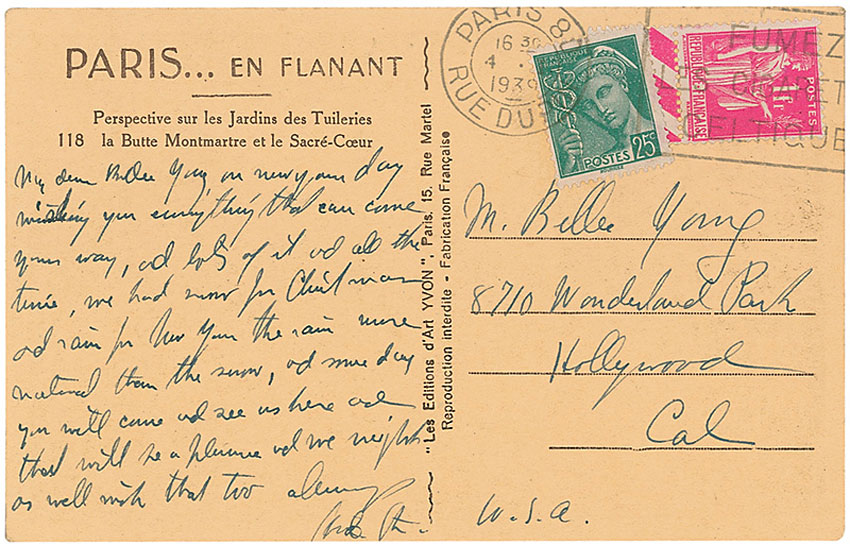 PARIS... EN FLANANT
Perspective sur les Jardins des Tuileries
118 la Butte Montmartre et le Sacré-Cœur
My dear Bellee Young on new years day
wishing you everything that can come
your way, and lots of it and all the
time, we had snow for Christmas
and rain for New Year the rain more
natural than the snow, and some day
you will come and see us here and
that will be a pleasure and we might
as well wish that too always
"Les Editions d'Art YVON", Paris, 15, Rue Martel
Reproduction interdite - Fabrication Française
PARIS 8
16 30
4
1939
RUE DU
REPUBLIQUE FRANÇAISE
POSTES
25c
REPUBLIQUE FRANÇAISE
POSTES
1F
FUMEZ
LES CIGARET
CELTIQUE
M. Bellee Young
8710 Wonderland Park
Hollywood
Cal
U.S.A.